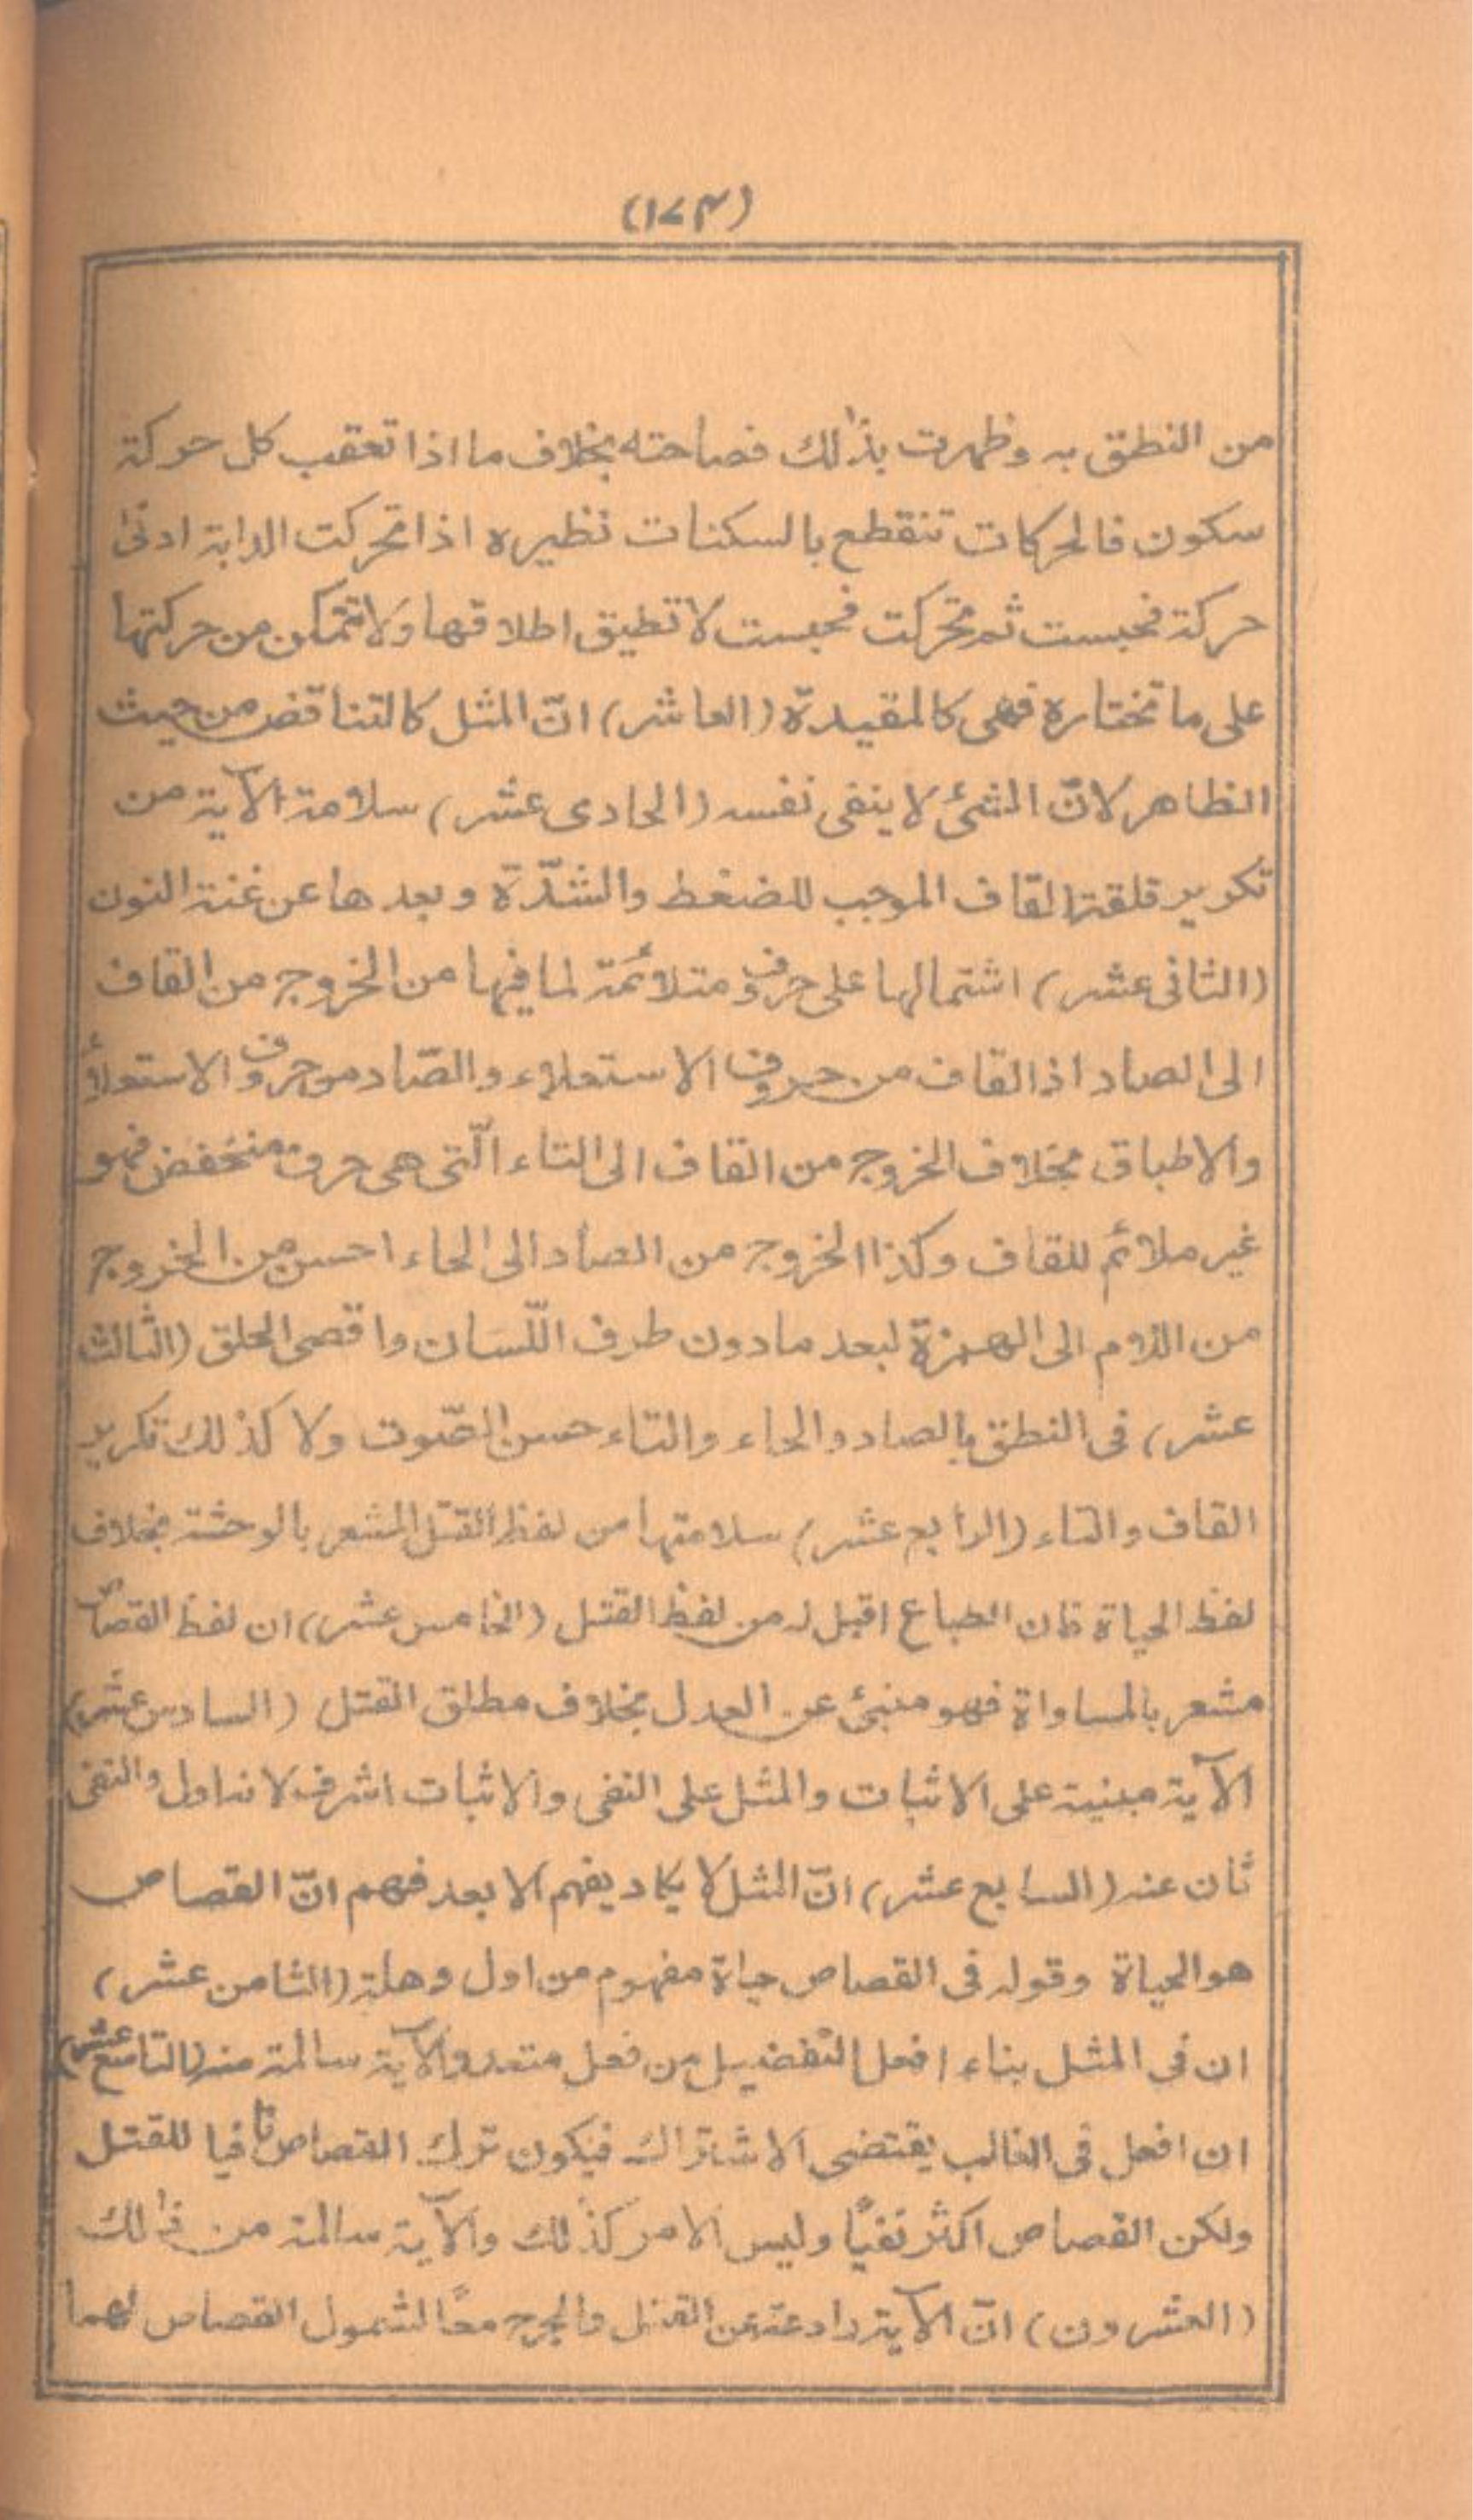 (١٧٣)
من النطق به وظهرت بذٰلك فصاحته بخلاف ما اذا تعقب كل حركة
سكون فالحركات تنقطع بالسكنات نظيره اذا تحركت الدابة ادنٰى
حركة فحبست ثم تحركت فحبست لا تطيق اطلاقها ولا تتمكن من حركتها
على ما تختاره فهى كالمقيدة (العاشر) انّ المثل كالتناقض من حيث
الظاهر لانّ الشئ لا ينفى نفسه (الحادى عشر) سلامة الآية من
تكرير قلقة القاف الموجب للضغط والشدّة وبعدها عن غنة النون
(الثانى عشر) اشتمالها على حروف متلائمة لما فيها من الخروج من القاف
الى الصاد اذ القاف من حروف الاستعلاء والصّاد من حروف الاستعلاء
والاطباق بخلاف الخروج من القاف الى التاء الّتى هى حرف منخفض فهو
غير ملائم للقاف وكذا الخروج من الصاد الى الحاء احسن من الخروج
من اللام الى الهمزة لبعد ما دون طرف اللّسان واقصى الحلق (الثالث
عشر) فى النطق بالصاد والحاء والتاء حسن الصّوت ولا كذٰلك تكرير
القاف والتاء (الرابع عشر) سلامتها من لفظ القتل المشعر بالوحشة بخلاف
لفظ الحياة فان الطباع اقبل له من لفظ القتل (الخامس عشر) ان لفظ القصاص
مشعر بالمساواة فهو منبئ عن العدل بخلاف مطلق القتل (السادس عشر)
الآية مبنية على الاثبات والمثل على النفى والاثبات اشرف لانه اول والنفى
ثان عنه (السابع عشر) انّ المثل لا يكاد يفهم الا بعد فهم انّ القصاص
هو الحياة وقوله فى القصاص حياة مفهوم من اول وهلة (الثامن عشر)
ان فى المثل بناء افعل التفضيل من فعل متعد والآية سالمة منه (التاسع عشر)
ان افعل فى الغالب يقتضى الاشتراك فيكون ترك القصاص نافيا للقتل
ولكن القصاص اكثر نفيًا وليس الامر كذٰلك والآية سالمة من ذٰلك
(العشرون) انّ الآية رادعة عن القتل والجرح معًا لشمول القصاص لهما